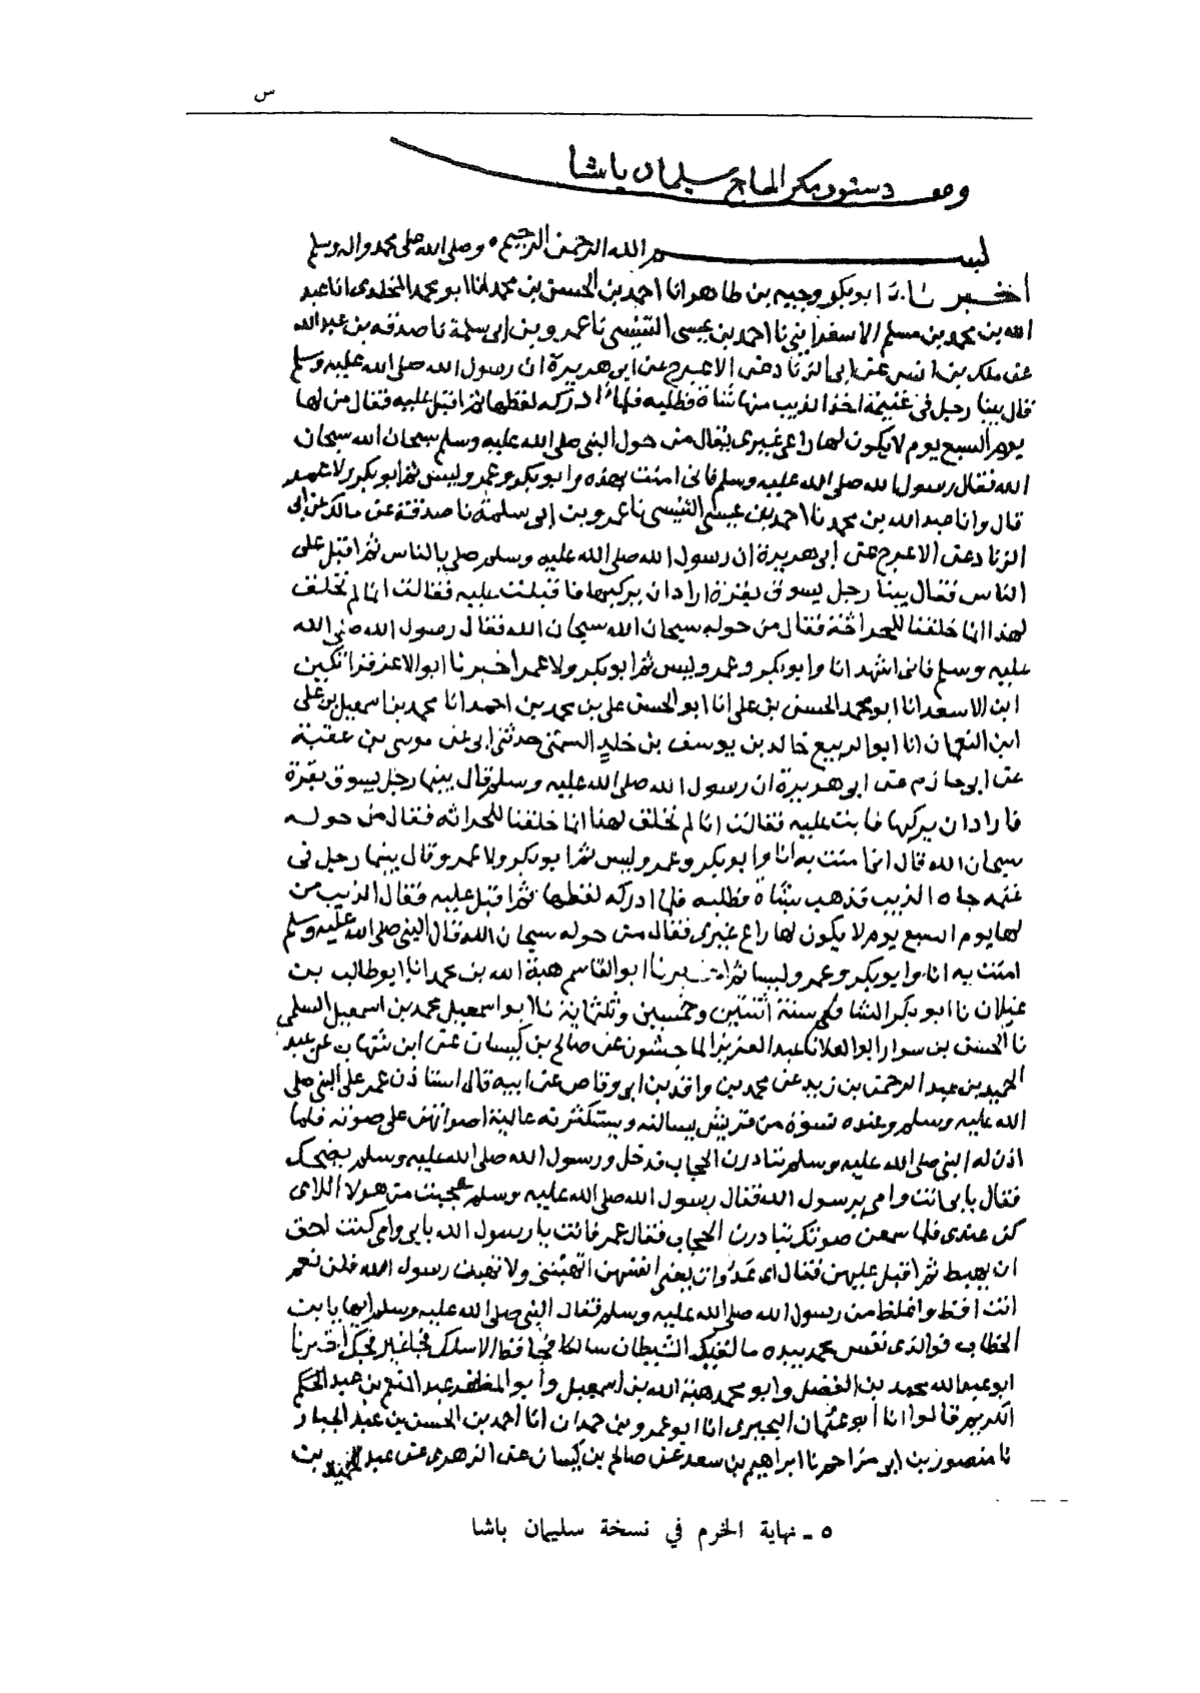 س
وقف دستور مكرم الحاج سليمان باشا
بسم الله الرحمن الرحيم وصلى الله على محمد واله وسلم
اخبرنا ابو بكر وجيه بن طاهر انا احمد بن الحسن بن محمد انا ابو محمد المخلدى انا عبد
الله بن محمد بن مسلم الاسفرايني نا احمد بن عيسى التنيسى نا عمرو بن ابى سلمة نا صدقه بن عبد الله
عن ملك بن انس عن ابى الزناد عن الاعرج عن ابى هريرة ان رسول الله صلى الله عليه وسلم
قال بينا رجل فى غنيمة اخذ الذيب منها شاة فطلبه فلما ادركه لفظها ثم اقبل عليه فقال من لها
يوم السبع يوم لا يكون لها راعى غيرى فقال من حول النبى صلى الله عليه وسلم سبحان الله سبحان
الله فقال رسول الله صلى الله عليه وسلم فانى امنت بهذه وابو بكر وعمر وليس ثم ابو بكر ولا عمر
قال وانا عبد الله بن محمد نا احمد بن عيسى التنيسى نا عمرو بن ابى سلمة نا صدقة عن مالك عن ابى
الزناد عن الاعرج عن ابى هريرة ان رسول الله صلى الله عليه وسلم صلى بالناس ثم اقبل على
الناس فقال بينا رجل يسوق بقرة اراد ان يركبها فاقبلت عليه فقالت انا لم نخلف
لهذا انما خلقنا للحراثة فقال من حوله سبحان الله سبحان الله فقال رسول الله صلى الله
عليه وسلم فانى اشهد انا وابو بكر وعمر وليس ثم ابو بكر ولا عمر اخبرنا ابو الاعز قراتكين
ابن الاسعد انا ابو محمد الحسن بن على انا ابو الحسن على بن محمد بن احمد انا محمد بن اسمعيل بن على
ابن النعمان انا ابو الربيع خالد بن يوسف بن خليد السمتى حدثنى ابى عن موسى بن عقبة
عن ابى حازم عن ابى هريرة ان رسول الله صلى الله عليه وسلم قال بينما رجل يسوق بقرة
فاراد ان يركبها فابت عليه فقالت انا لم نخلف لهذا انما خلقنا للحراثه فقال من حوله
سبحان الله قال انما منت به انا وابو بكر وعمر وليس ثم ابو بكر ولا عمر وقال بينما رجل فى
غنمه جاه الذيب فذهب بشاة فطلبه فلما ادركه لفظها ثم اقبل عليه فقال الذيب من
لها يوم السبع يوم لا يكون لها راع غيرى فقال من حوله سبحان الله قال النبى صلى الله عليه وسلم
امنت به انا وابو بكر وعمر وليسا ثم اخبرنا ابو القاسم هبة الله بن محمد انا ابو طالب بن
غيلان نا ابو بكر الشافعى سنة اثنتين وخمسين وثلثماية نا ابو اسمعيل محمد بن اسمعيل السلمى
نا الحسن بن سوار ابو العلا نا عبد العزيز الماجشون عن صالح بن كيسان عن ابن شهاب عن عبد
الحميد بن عبد الرحمن بن زيد عن محمد بن واقد بن ابى وقاص عن ابيه قال استاذن عمر على النبى صلى
الله عليه وسلم وعنده نسوة من قريش يسالنه ويستكثرنه عالية اصواتهن على صوته فلما
اذن له النبى صلى الله عليه وسلم تبادرن الحجاب فدخل ورسول الله صلى الله عليه وسلم يضحك
فقال بابى انت وامى يرسول الله فقال رسول الله صلى الله عليه وسلم عجبت من هولا اللاى
كن عندى فلما سمعن صوتك تبادرن الحجاب فقال عمر فانت يا رسول الله بابى وامى كنت احق
ان يهبط ثم اقبل عليهن فقال اى عدوات يعنى انفسهن اتهبننى ولا تهبن رسول الله قلن نعم
انت افظ واغلظ من رسول الله صلى الله عليه وسلم فقال النبى صلى الله عليه وسلم ايها يا بن
الخطاب فوالذى نفس محمد بيده ما لقيك الشيطان سالكا فجا قط الا سلك فجا غير فجك اخبرنا
ابو عبد الله محمد بن الفضل وابو محمد هبة الله بن اسمعيل وابو المظفر عبد المنعم بن عبد الكريم
قالوا انا ابو عثمان البحيرى انا ابو عمرو بن حمدان انا احمد بن الحسن بن عبد الجبار
نا منصور بن ابى مزاحم نا ابراهيم بن سعد عن صالح بن كيسان عن الزهرى عن عبد الحميد بن
٥ - نهاية الخرم في نسخة سليمان باشا